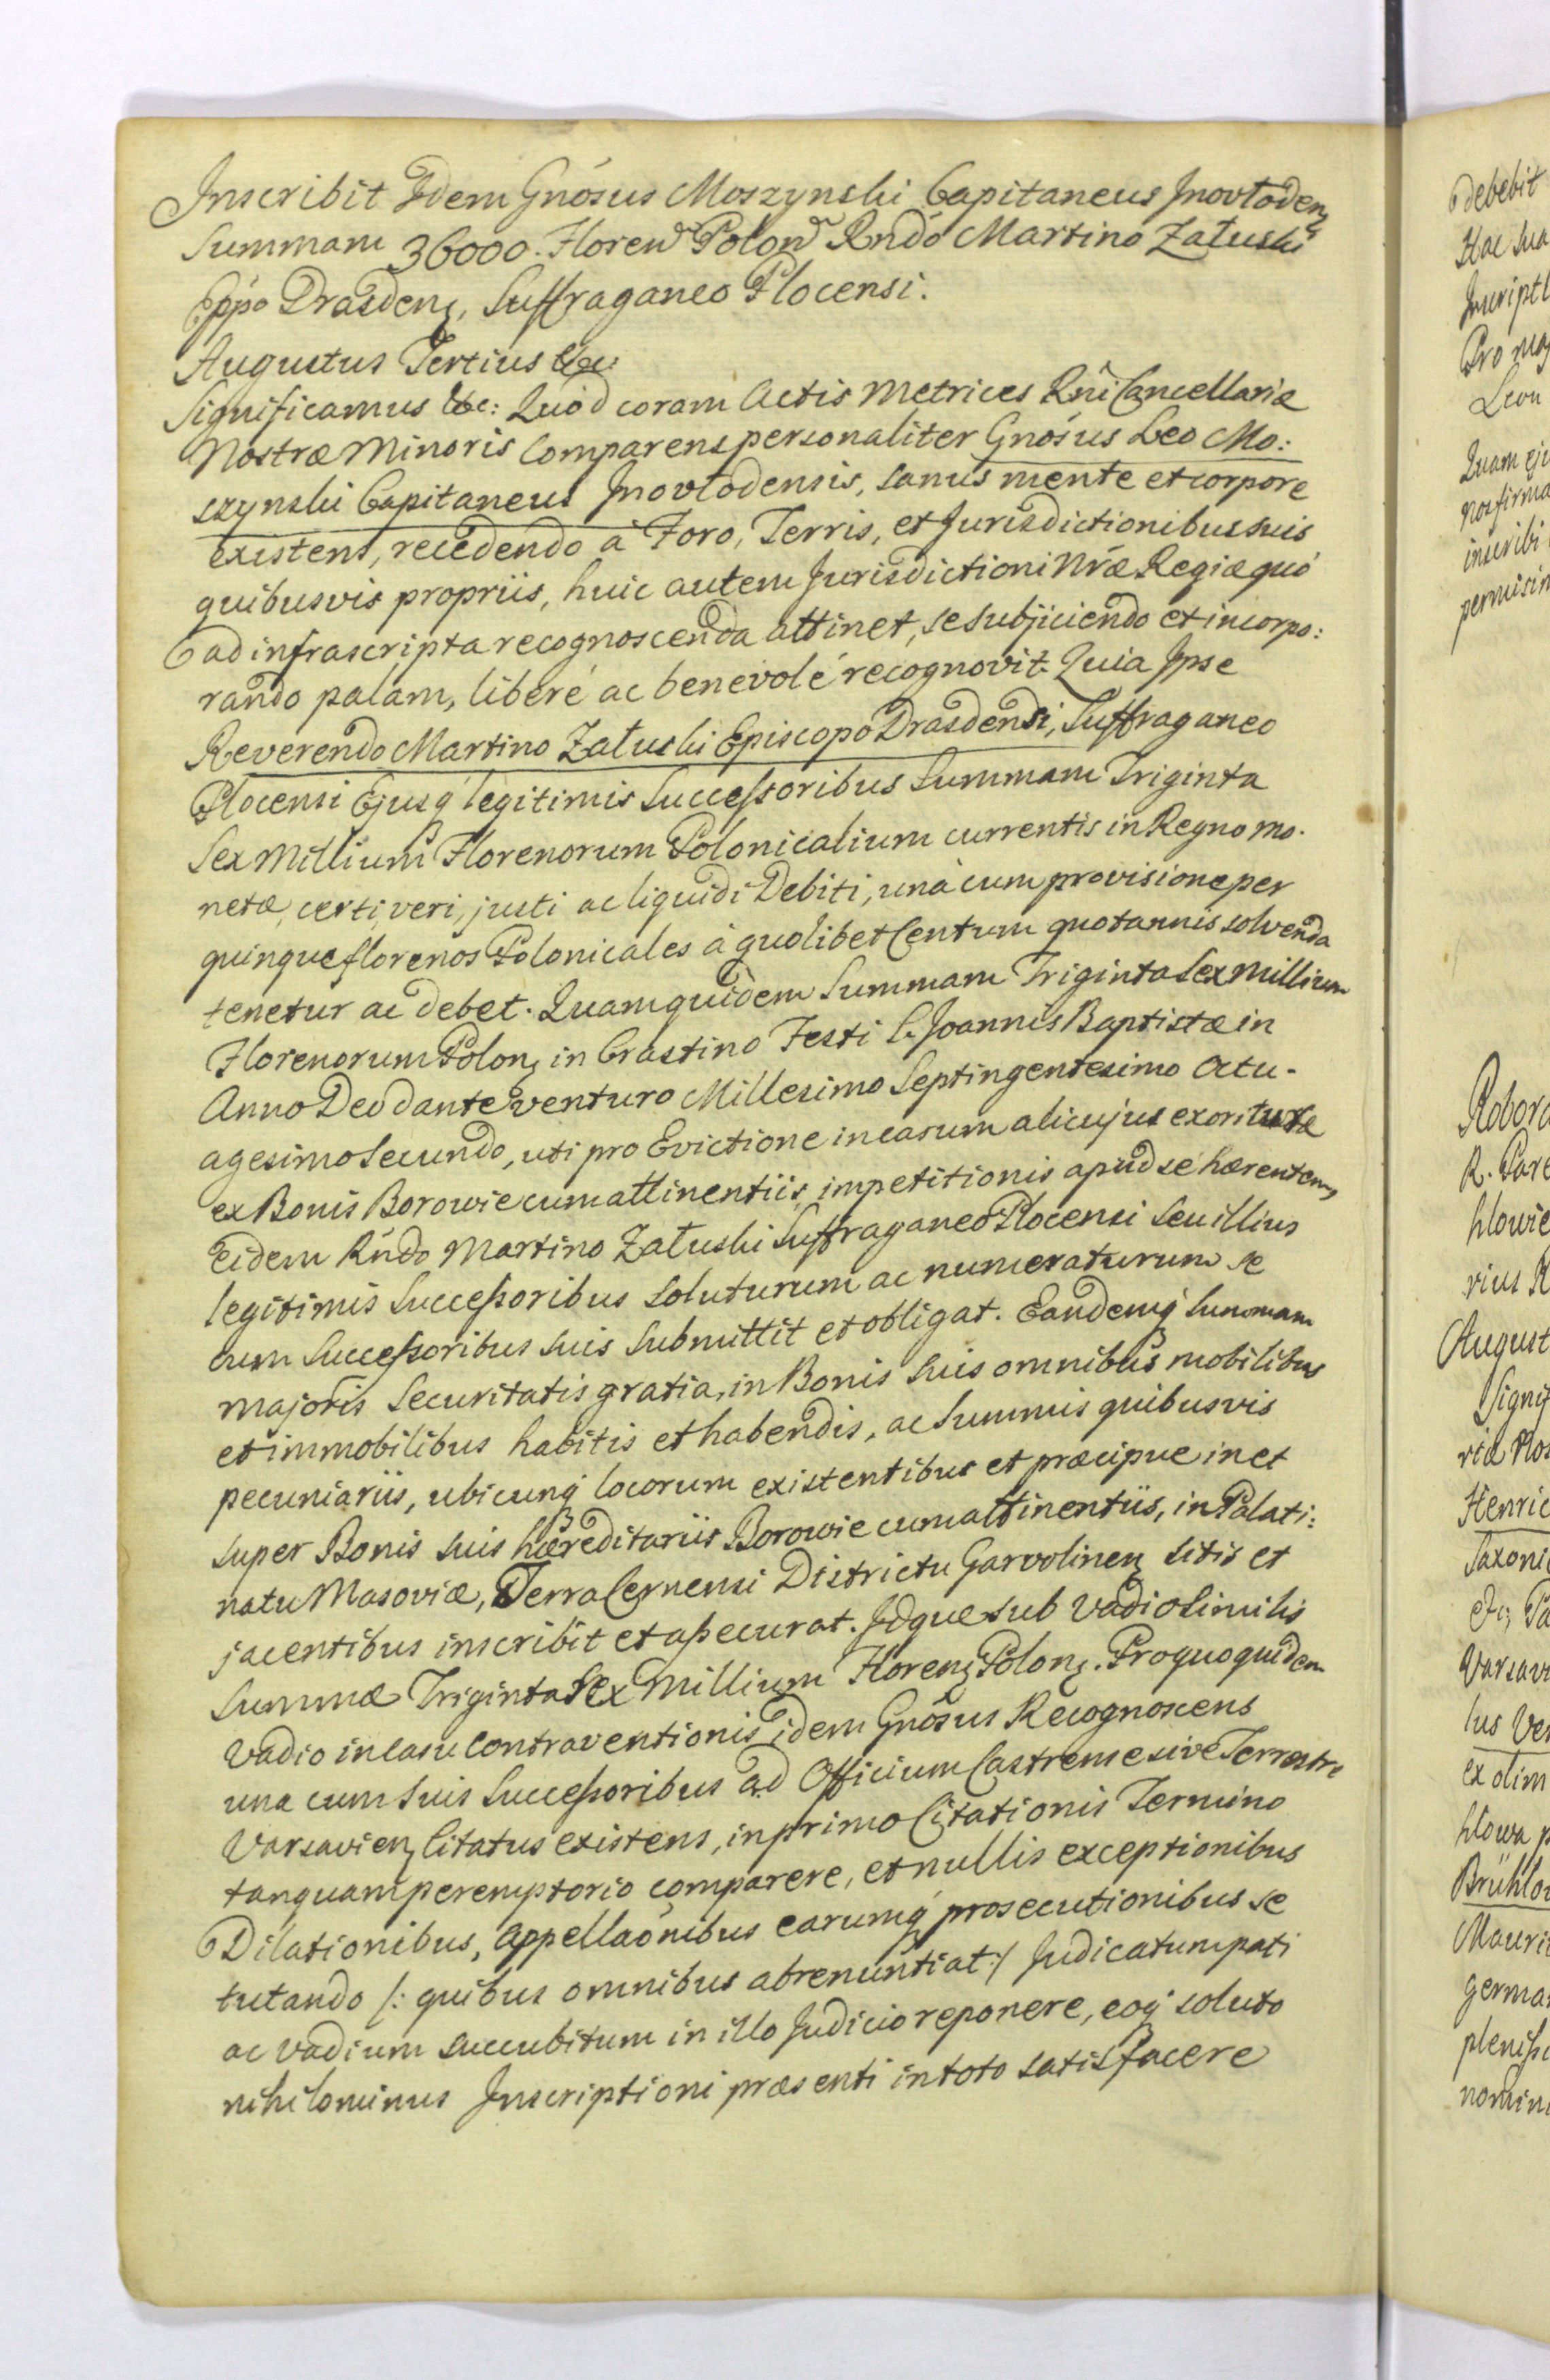 Inscribit Idem Gnósus Moszynski Capitaneus Inovłodenz
Summam 36000. Floren Polon Rndó Martino Załuski
Eppó Drasdenz, Suffraganeo Plocensi.
Augustus Tertius &c:
Significamus &c: Quód coram Actis Metrices Rñi Cancellariæ
Nostræ Minoris Comparens personaliter Gnósus Leo Mo:
szynski Capitaneus Inovłodensis, sanus mente et corpore
existens, recedendo à Foro, Terris, et Jurisdictionibus suis
quibusvis propriis, huic autem Jurisdictioni Nræ Regiæ quó
ad infrascripta recognoscenda attinet, se subjiciendo et incorpo:
rando palam, liberé ac benevolé recognovit. Quia Ipse
Reverendo Martino Załuski Episcopo Drasdensi, Suffraganeo
Plocensi Ejusq́ legitimis Successoribus Summam Triginta
Sex Millium Florenorum Polonicalium currentis in Regno mo.
netæ, certi, veri, justi ac liquidi Debiti, unà cum provisione per
quinque florenos Polonicales à quolibet Centum quotannis solvenda
tenetur ac debet. Quamquidem Summam Triginta Sex Millium
Florenorum Polonz in Crastino Festi S. Joannis Baptistæ in
Anno Deo dante venturo Millesimo Septingentesimo Qtu-
agesimo Secundo, uti pro Evictione in casum alicujus exorituræ
ex Bonis Borowie cum attinentiis impetitionis apud se hærentem,
eidem Rńdo Martino Załuski Suffraganeo Plocensi seu illius
legitimis Successoribus soluturum ac numeraturum se
cum Successoribus suis submittit et obligat. Eandemq́ Summam
majoris Securitatis gratia, in Bonis suis omnibus mobilibus
et immobilibus habitis et habendis, ac Summis quibusvis
pecuniariis, ubicunq́ locorum existentibus et præcipue in et
super Bonis suis hæreditariis Borowie cum attinentiis, in Palati:
natu Masoviæ, Terra Cernensi Districtu Garvolinenz sitis et
jacentibus inscribit et assecurat. Idque sub vadio similis
Summæ Triginta Sex Millium Florenz Polonz. Pro quo quidem
Vadio in casu Contraventionis idem Gnósus Recognoscens
una cum suis Successoribus ad Officium Castrense sive Terrestre
Varsavienz Citatus existens, in primo Citationis Termino
tanquam peremptorio comparere, et nullis exceptionibus
Dilationibus, Appellaónibus earumq́ prosecutionibus se
tutando /: quibus omnibus abrenuntiat :/ Judicatum pati
ac vadium succubitum in illo Judicio reponere, eoq́ soluto
nihilominus Inscriptioni præsenti in toto satisfacere
debebit
Hac sua
Pro maj
Leon
Quam eju
inscribi
permisim
Robora
R. Pare
hlowie
rius R
August
Signif
riæ Nos
Henric
Saxoni
Varsavi
lus Ver
ex olim
hlowa p
Brühlow
Mauri
germa
nomin